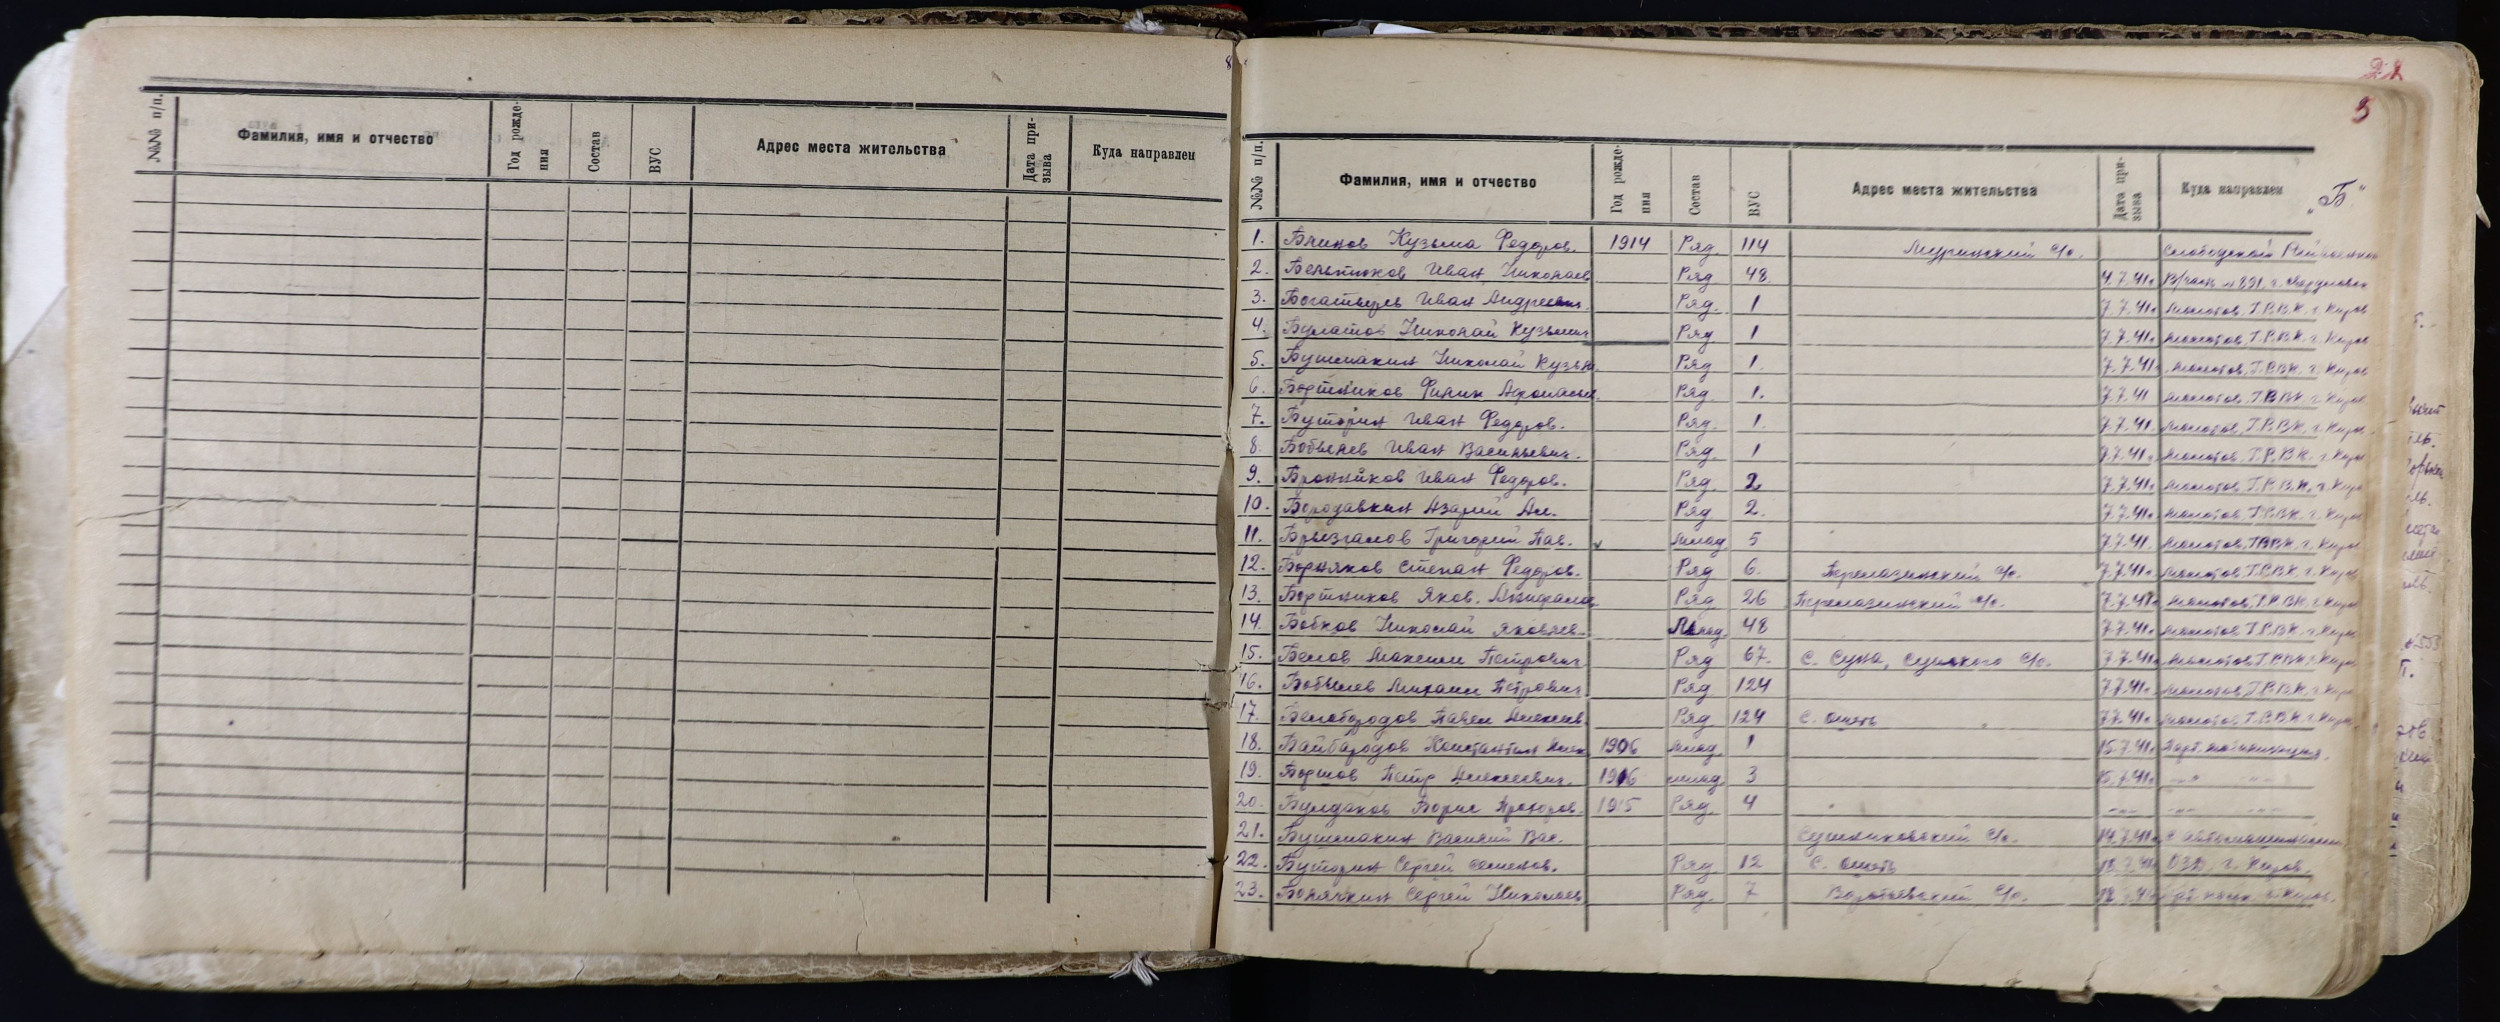 №№ п/п. Фамилия, имя и отчество Год рождения Состав ВУС Адрес места жительства Дата призыва Куда направлен
8
3
№№ п/п. Фамилия, имя и отчество Год рождения Состав ВУС Адрес места жительства Дата призыва Куда направлен „Б“
1. Блинов Кузьма Федоров. 1914 Ряд. 114 с/с. Слободской
2. Бельтюков Иван Николаев Ряд 48. 4.7.41г. В/часть г. Свердловск
3. Богатырев Иван Андреевич Ряд. 1 7.7.41г. Молотов. Г.Р.В.К. г. Киров
4. Булатов Николай Кузьмич Ряд 1 7.7.41г. Молотов. Г.Р.В.К. г. Киров
5. Бушмакин Николай Кузьм. Ряд 1. 7.7.41г. Молотов. Г.Р.В.К. г. Киров
6. Бортников Филип Ряд. 1. 7.7.41 Молотов. Г.Р.В.К. г. Киров
7. Буторин Иван Федоров. Ряд. 1. 7.7.41г. Молотов. Г.Р.В.К. г. Киров
8. Бобылев Иван Васильевич. Ряд. 1 7.7.41г. Молотов. Г.Р.В.К. г. Киров
9. Бронников Иван Федоров. Ряд. 2 7.7.41г. Молотов. Г.Р.В.К. г. Киров
10. Бородавкин Азарий Ал. Ряд 2. 7.7.41г. Молотов. Г.Р.В.К. г. Киров
11. Брызгалов Григорий Пав. млад 5 7.7.41. Молотов. Г.Р.В.К. г. Киров
12. Борняков Степан Федоров. Ряд 6. Перелазинский с/с. 7.7.41г. Молотов. Г.Р.В.К. г. Киров
13. Бортников Яков. Ряд. 26 Перелазинский с/с. 7.7.41г. Молотов. Г.Р.В.К. г. Киров
14. Бобков Николай Яковлев. Млад. 48 7.7.41г. Молотов Г.Р.В.К. г. Киров
15. Белов Максим Петрович Ряд 67. с. Суна, Сунского с/с. 7.7.41г. Молотов. Г.Р.В.К. г. Киров
16. Бобылев Михаил Петрович Ряд 124 7.7.41г. Молотов. Г.Р.В.К. г. Киров
17. Белобородов Павел Алексеев. Ряд. 124 с. Ошеть 7.7.41г. Молотов. Г.Р.В.К. г. Киров
18. Байбародов Константин 1906 млад. 1 15.7.41г. Парт. мобилизация.
19. Петр Алексеевич. 1916 млад. 3 15.7.41г. —„— —„—
20. Булдаков Борис Прохоров. 1915 Ряд. 4 —„— —„— —„—
21. Бушмакин Василий Вас. с/с. 14.7.41г. с автомашинами
22. Буторин Сергей Семенов. Ряд 12 с. Ошеть г. Киров.
23. Сергей Николаев Ряд. 7 с/с. г. Киров.